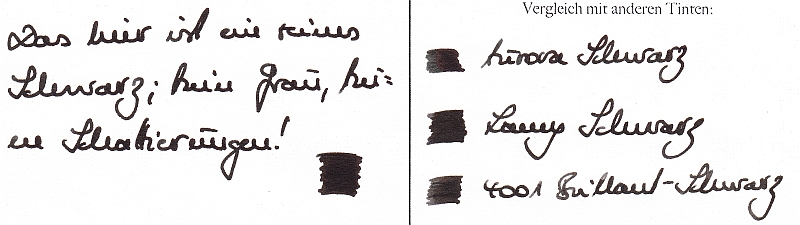 Das hier ist ein reines
Schwarz; kein Grau, kei=
ne Schattierungen!
Vergleich mit anderen Tinten:
Aurora Schwarz
Lamy Schwarz
4001 Brillant-Schwarz